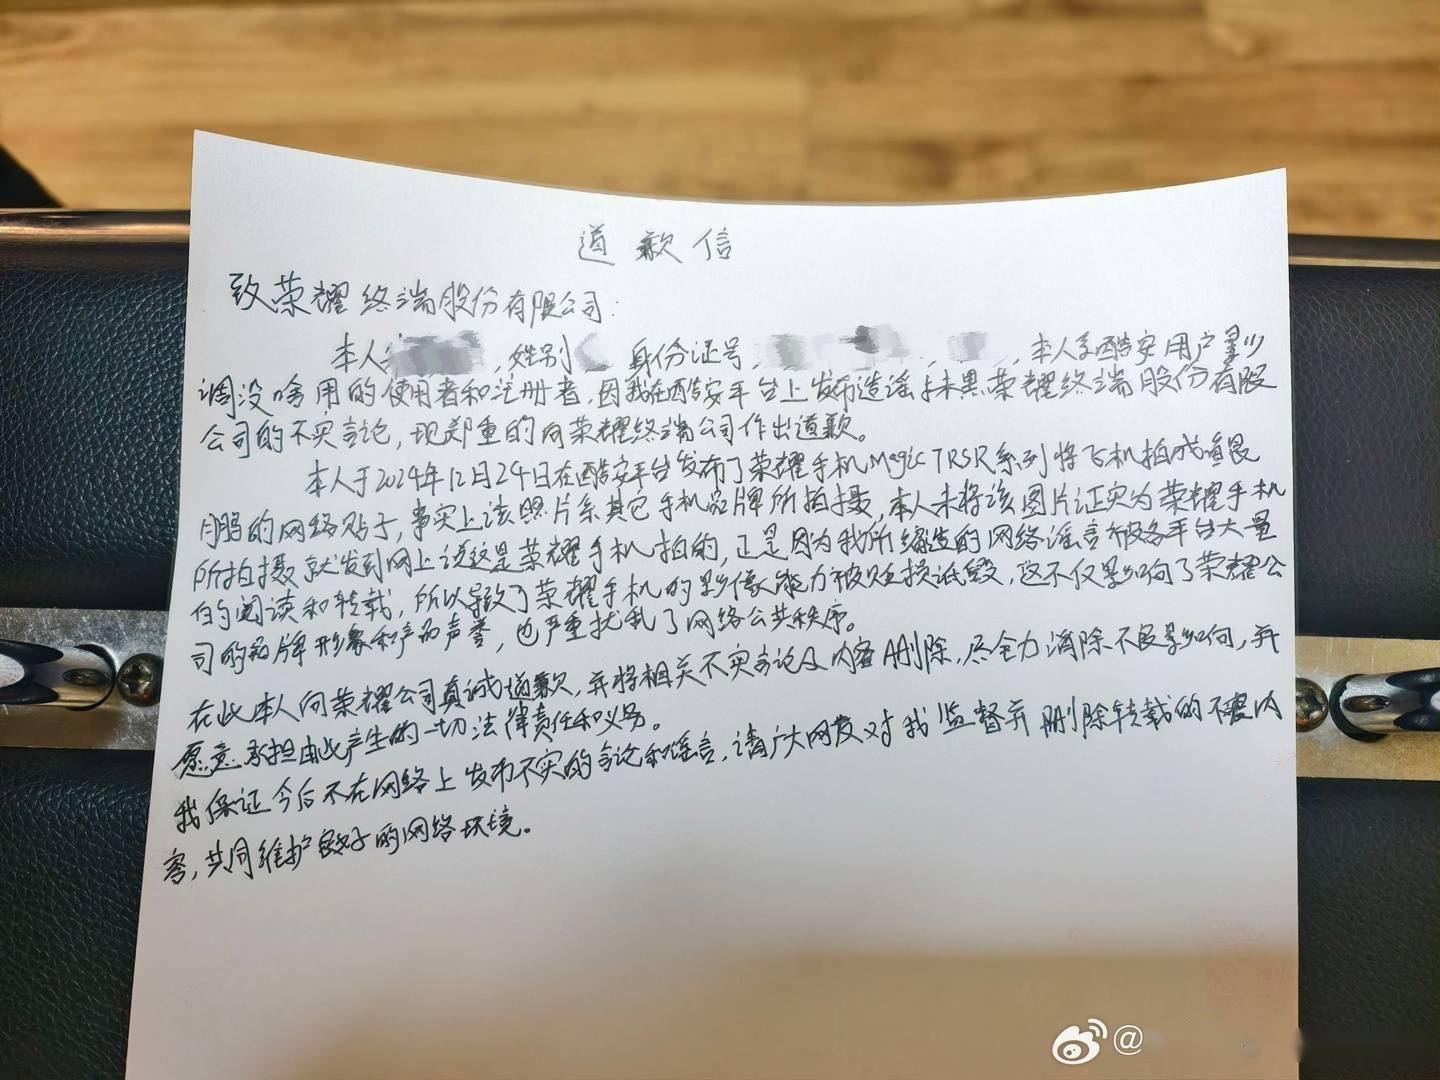 道歉信
致荣耀终端股份有限公司:
本人 ,姓别 身份证号 , , 本人系酷安用户影
调没啥用的使用者和注册者,因我在酷安平台上发布造谣抹黑荣耀终端股份有限
公司的不实言论,现郑重的向荣耀终端公司作出道歉。
本人于2024年12月24日在酷安平台发布了荣耀手机Magic7RSR系列将飞机拍成道长
的网络贴子,事实上该照片系其它手机品牌所拍摄,本人未将该图片证实为荣耀手机
所拍摄就发到网上说这是荣耀手机拍的,正是因为我所编造的网络谣言被各平台大量
的阅读和转载,所以导致了荣耀手机的影像能力被贬损诋毁,这不仅影响了荣耀公
司的品牌形象和产品声誉,也严重扰乱了网络公共秩序。
在此本人向荣耀公司真诚道歉,并将相关不实言论及内容删除,尽全力消除不良影响,并
愿意承担由此产生的一切法律责任和义务。
我保证今后不在网络上发布不实的言论和谣言,请广大网友对我监督并删除转载的不良内
容,共同维护良好的网络环境。
@